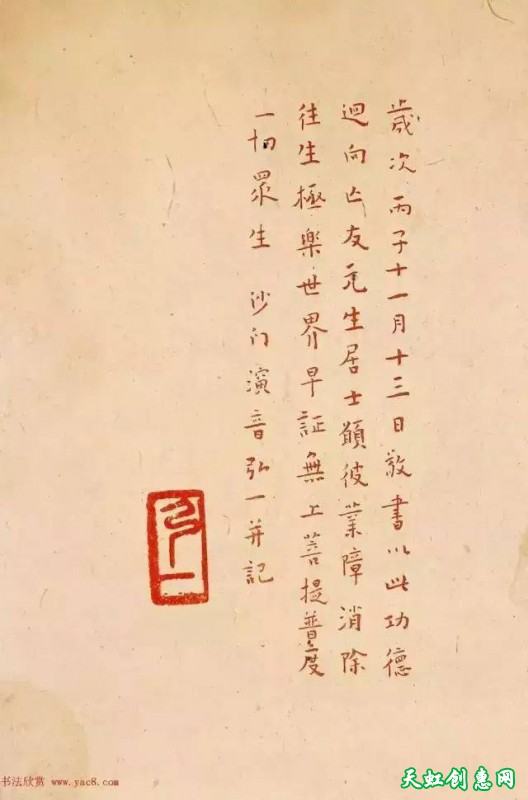 歲次丙子十一月十三日敬書以此功德
迴向亡友元生居士願彼業障消除
往生極樂世界早証無上菩提普度
一切眾生 沙门演音弘一并記
弘一
书法欣赏 www.yac8.com
天虹创惠网